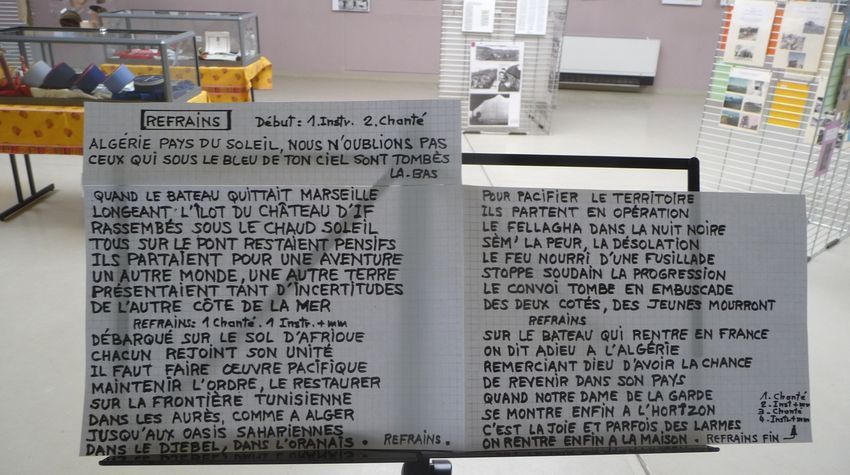 REFRAINS Début : 1. Instr. 2. Chanté
ALGÉRIE PAYS DU SOLEIL, NOUS N'OUBLIONS PAS
CEUX QUI SOUS LE BLEU DE TON CIEL SONT TOMBÈS
LA-BAS
QUAND LE BATEAU QUITTAIT MARSEILLE
LONGEANT L'ÎLOT DU CHÂTEAU D'IF
RASSEMBÉS SOUS LE CHAUD SOLEIL
TOUS SUR LE PONT RESTAIENT PENSIFS
ILS PARTAIENT POUR UNE AVENTURE
UN AUTRE MONDE, UNE AUTRE TERRE
PRÉSENTAIENT TANT D'INCERTITUDES
DE L'AUTRE CÔTE DE LA MER
REFRAINS : 1 Chanté . 1 Instr. + mm
DÉBARQUÉ SUR LE SOL D'AFRIQUE
CHACUN REJOINT SON UNITÉ
IL FAUT FAIRE ŒUVRE PACIFIQUE
MAINTENIR L'ORDRE, LE RESTAURER
SUR LA FRONTIÈRE TUNISIENNE
DANS LES AURÈS, COMME A ALGER
JUSQU'AUX OASIS SAHARIENNES
DANS LE DJEBEL, DANS L'ORANAIS . REFRAINS .
POUR PACIFIER LE TERRITOIRE
ILS PARTENT EN OPÉRATION
LE FELLAGHA DANS LA NUIT NOIRE
SÈM' LA PEUR, LA DÉSOLATION
LE FEU NOURRI D'UNE FUSILLADE
STOPPE SOUDAIN LA PROGRESSION
LE CONVOI TOMBE EN EMBUSCADE
DES DEUX COTÉS, DES JEUNES MOURRONT
REFRAINS
SUR LE BATEAU QUI RENTRE EN FRANCE
ON DIT ADIEU A L'ALGÉRIE
REMERCIANT DIEU D'AVOIR LA CHANCE
DE REVENIR DANS SON PAYS
QUAND NOTRE DAME DE LA GARDE
SE MONTRE ENFIN A L'HORIZON
C'EST LA JOIE ET PARFOIS, DES LARMES
ON RENTRE ENFIN A LA MAISON . REFRAINS FIN
1. Chanté
2. Inst + mm
3. Chanté
4. Inst + mm